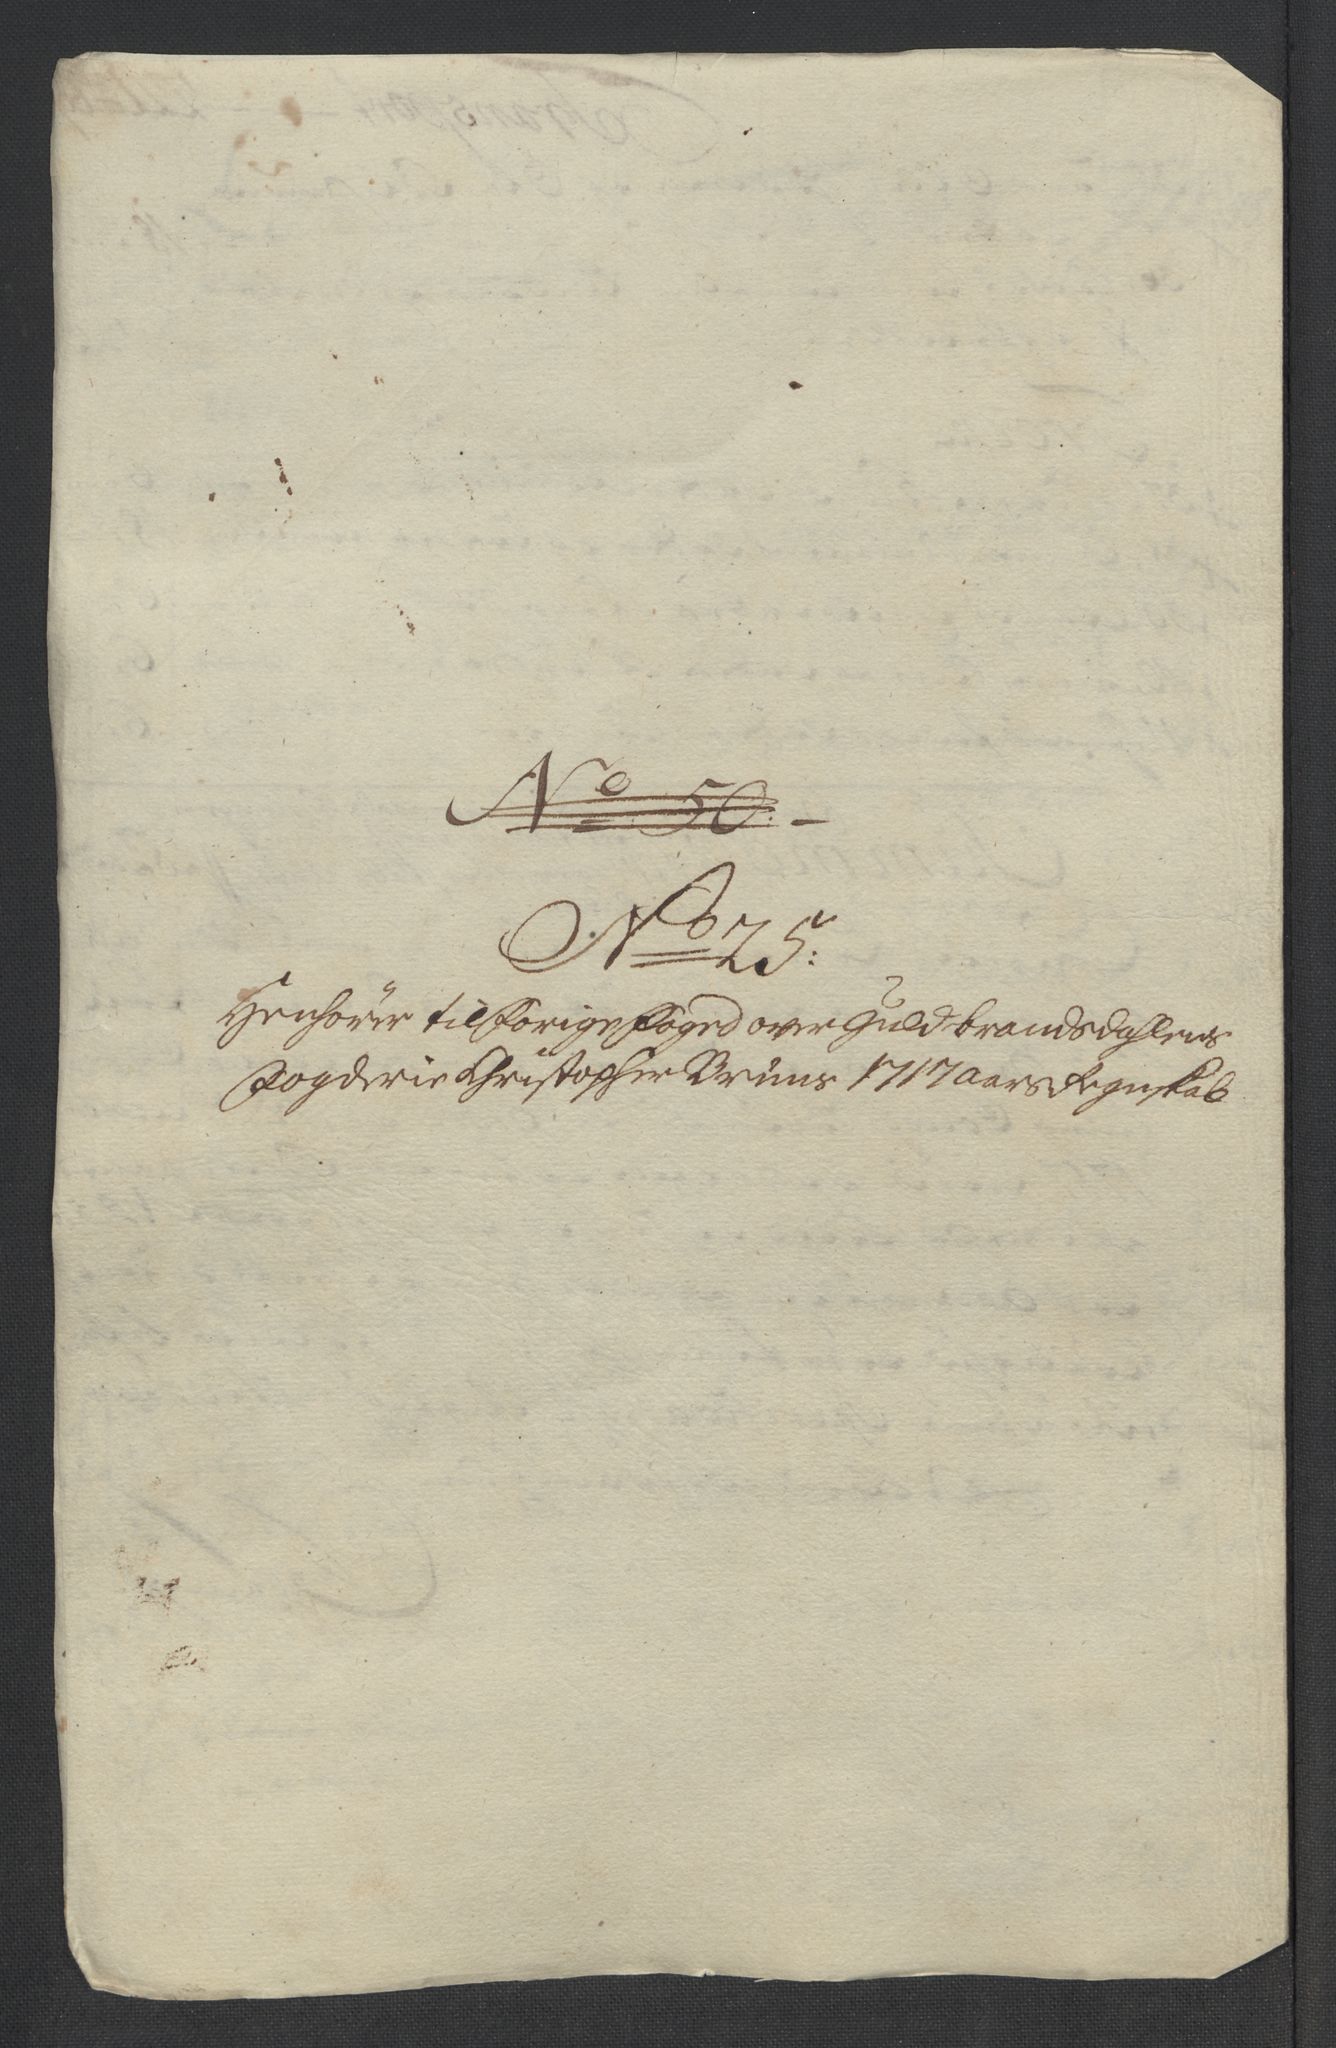 No 50.
No 25:
Henhører til Forige Foged over Guldbrandsdahlens
Fogderie Christopher Bruuns 1717 Aars Regnskab